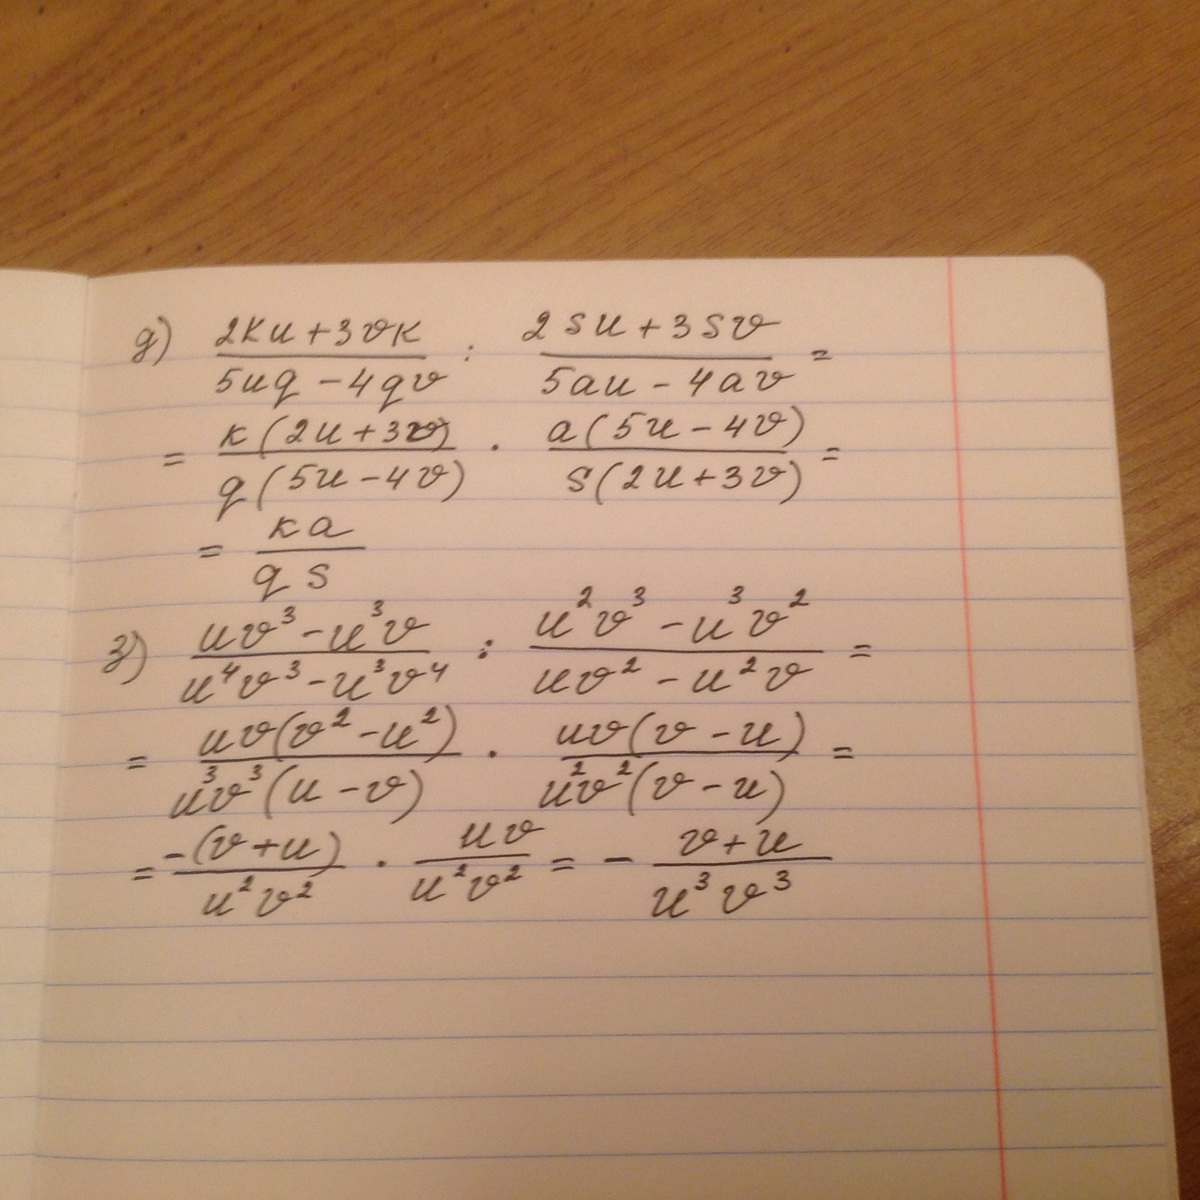 д) (2ku+3vk)/(5uq-4qv) : (2su+3sv)/(5au-4av) =
= (k(2u+3v))/(q(5u-4v)) · (a(5u-4v))/(s(2u+3v)) =
= (ka)/(qs)
з) (uv³-u³v)/(u⁴v³-u³v⁴) : (u²v³-u³v²)/(uv²-u²v) =
= (uv(v²-u²))/(u³v³(u-v)) · (uv(v-u))/(u²v²(v-u)) =
= (-(v+u))/(u²v²) · (uv)/(u²v²) = - (v+u)/(u³v³)